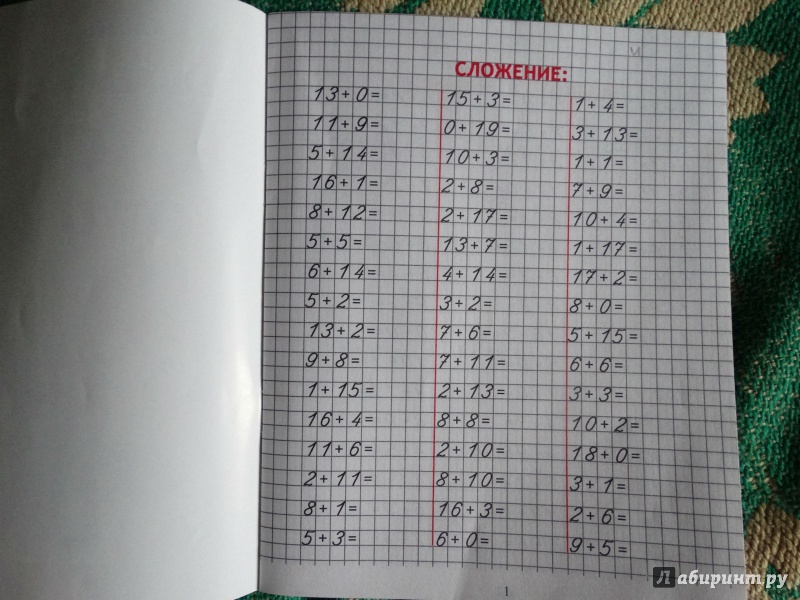 СЛОЖЕНИЕ:
13+0=
11+9=
5+14=
16+1=
8+12=
5+5=
6+14=
5+2=
13+2=
9+8=
1+15=
16+4=
11+6=
2+11=
8+1=
5+3=
15+3=
0+19=
10+3=
2+8=
2+17=
13+7=
4+14=
3+2=
7+6=
7+11=
2+13=
8+8=
2+10=
8+10=
16+3=
6+0=
1+4=
3+13=
1+1=
7+9=
10+4=
1+17=
17+2=
8+0=
5+15=
6+6=
3+3=
10+2=
18+0=
3+1=
2+6=
9+5=
1
Лабиринт.ру